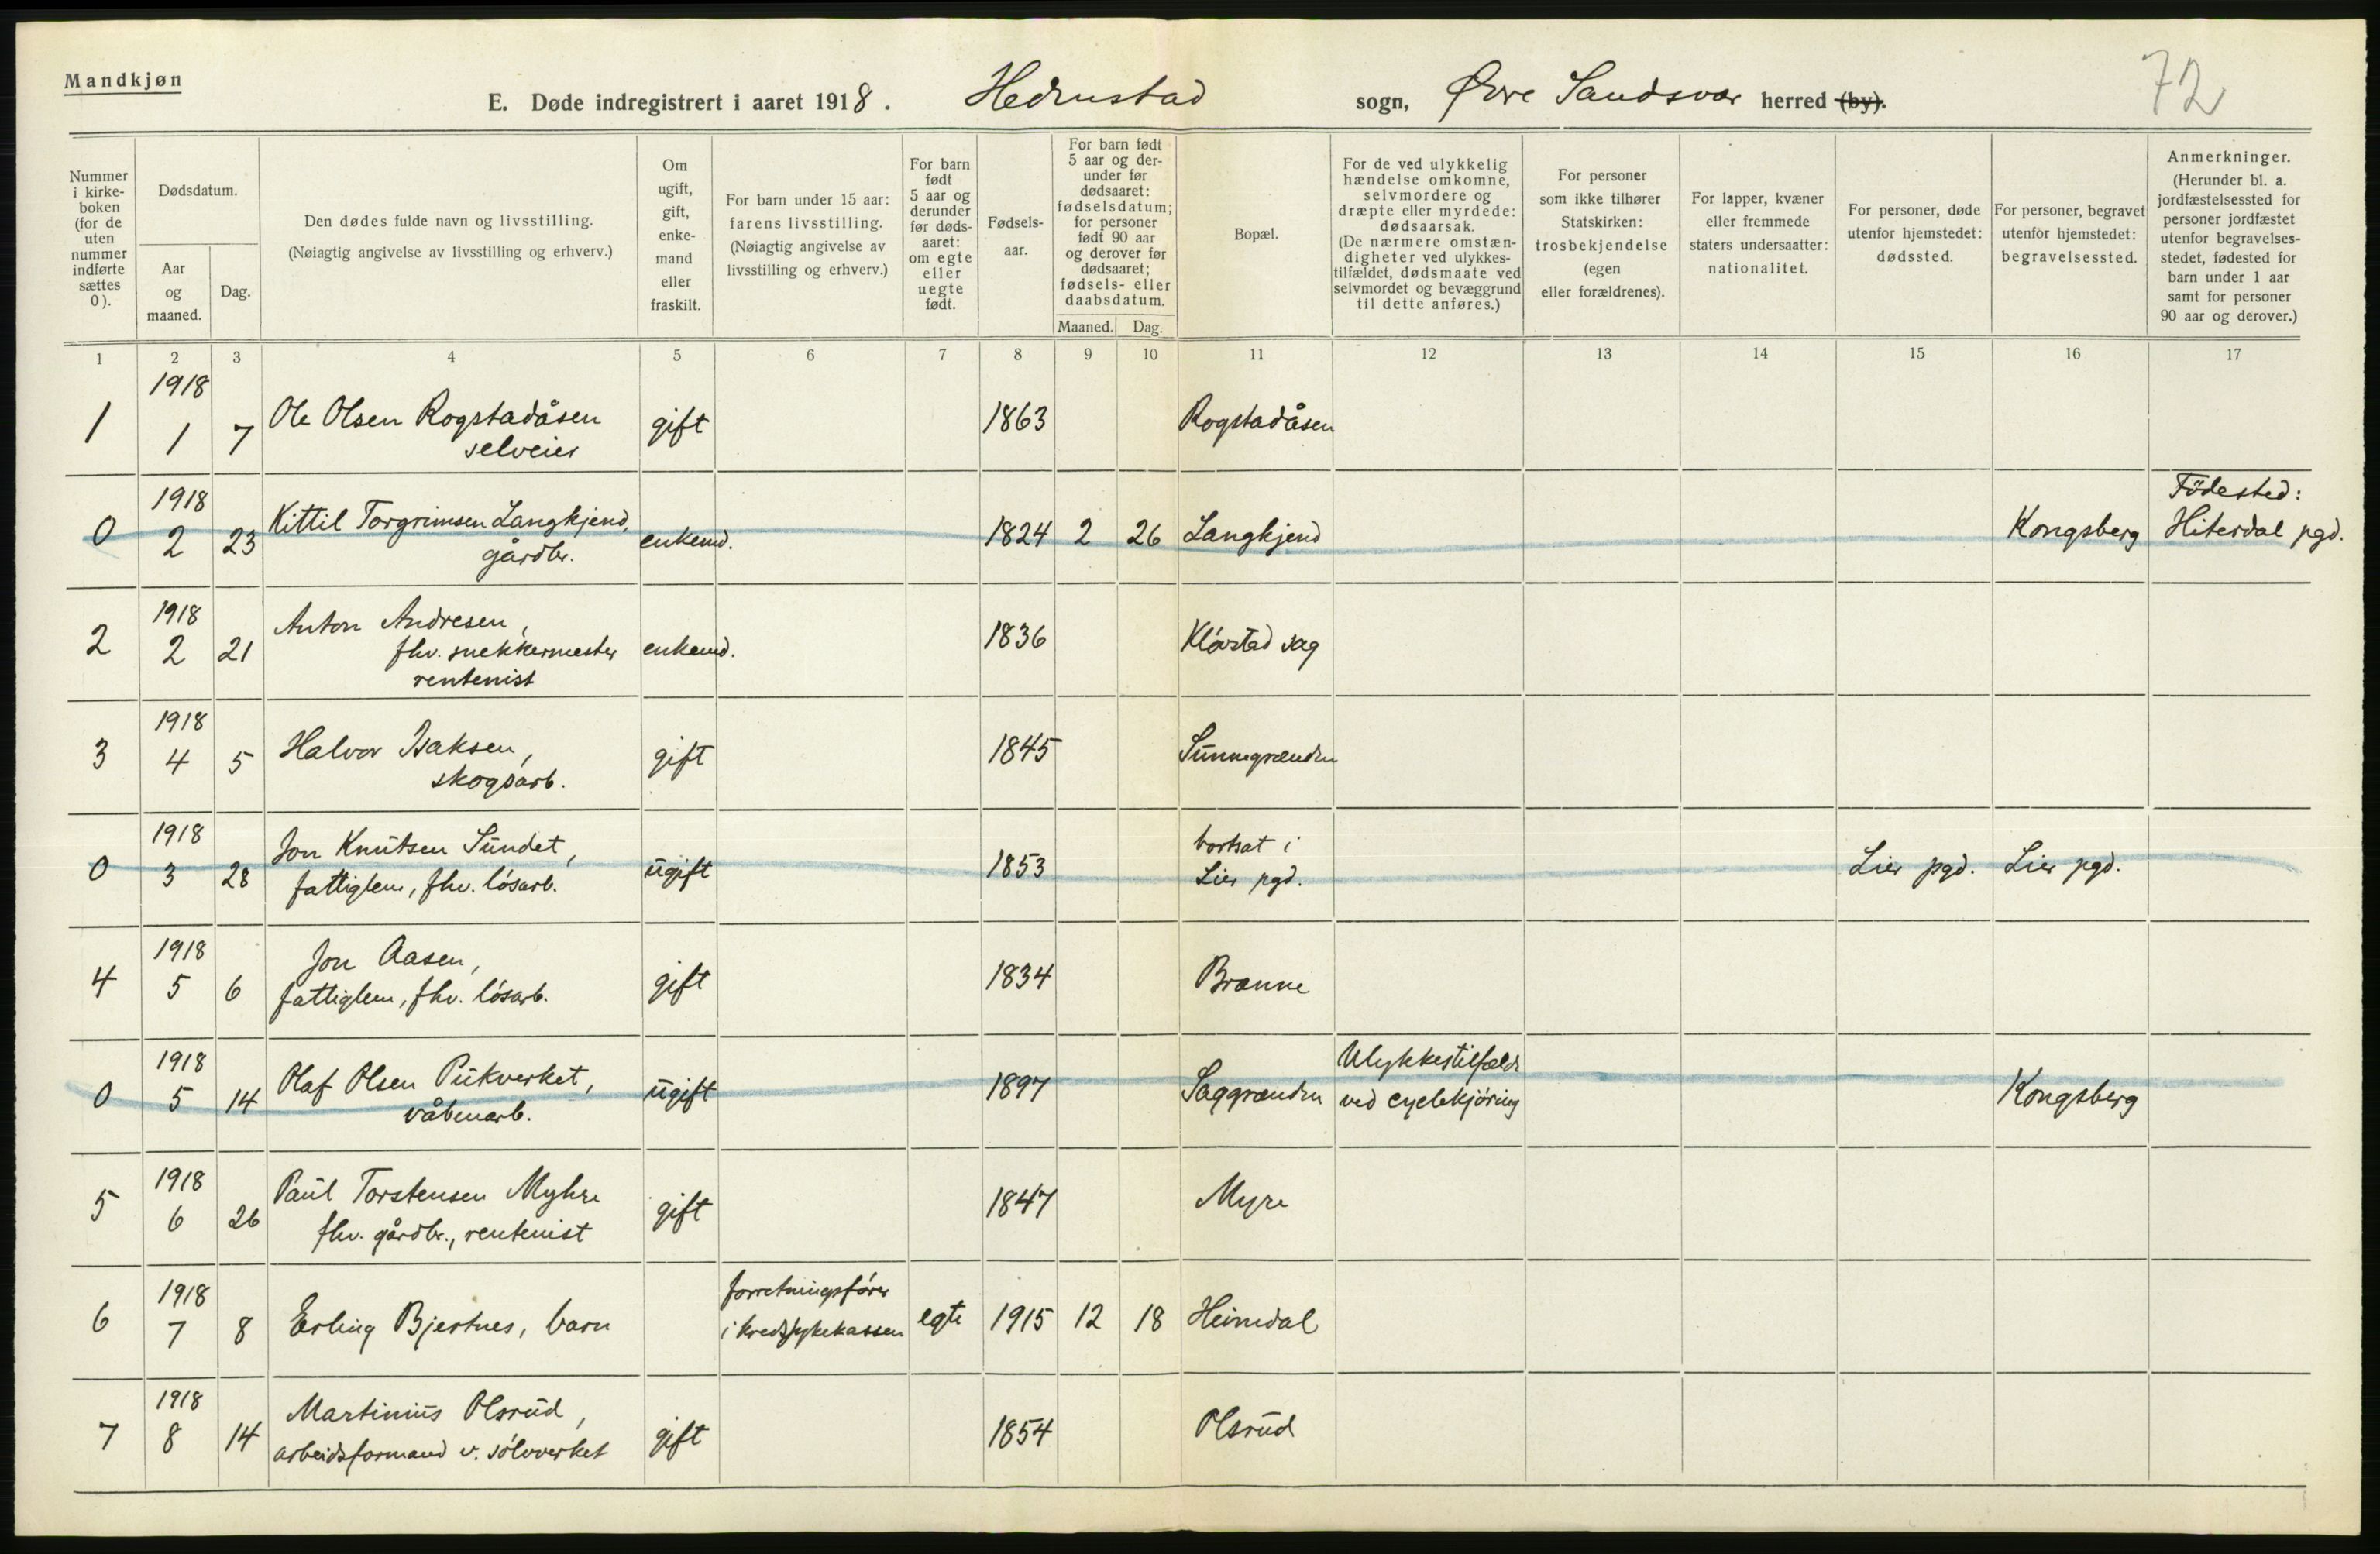 Mandkjøn
E. Døde indregistrert i aaret 1918. Hedenstad sogn, Øvre Sandsvær herred (by).
72
Nummer i kirke-boken (for de uten nummer indførte sættes 0).
Dødsdatum.
Aar og maaned.
Dag.
Den dødes fulde navn og livsstilling.
(Nøiagtig angivelse av livsstilling og erhverv.)
Om ugift, gift, enke-mand eller fraskilt.
For barn under 15 aar: farens livsstilling.
(Nøiagtig angivelse av livsstilling og erhverv.)
For barn født 5 aar og derunder før døds-aaret: om egte eller uegte født.
Fødsels-aar.
For barn født 5 aar og der-under før dødsaaret: fødselsdatum; for personer født 90 aar og derover før dødsaaret; fødsels- eller daabsdatum.
Maaned. Dag.
Bopæl.
For de ved ulykkelig hændelse omkomne, selvmordere og dræpte eller myrdede: dødsaarsak.
(De nærmere omstæn-digheter ved ulykkes-tilfældet, dødsmaate ved selvmordet og bevæggrund til dette anføres.)
For personer som ikke tilhører Statskirken: trosbekjendelse (egen eller forældrenes).
For lapper, kvæner eller fremmede staters undersaatter: nationalitet.
For personer, døde utenfor hjemstedet: dødssted.
For personer, begravet utenfor hjemstedet: begravelsessted.
Anmerkninger.
(Herunder bl. a. jordfæstelsessted for personer jordfæstet utenfor begravelses-stedet, fødested for barn under 1 aar samt for personer 90 aar og derover.)
1 2 3 4 5 6 7 8 9 10 11 12 13 14 15 16 17
1918
1 1 7 Ole Olsen Rogstadåsen gift 1863 Rogstadåsen
selveier
1918 Födested:
0 2 23 Kittil Torgrimsen Langkjend, enkemd. 1824 2 26 Langkjend Kongsberg Hiterdal pgd.
gårdbr.
1918
2 2 21 Anton Andresen, enkemd. 1836 Kløvstad sag
fhv. snekkermester
rentenist
1918
3 4 5 Halvor Isaksen, gift 1845 Sunnegrænden
skogsarb.
1918
0 3 28 Jon Knutsen Sundet, ugift 1853 bortsat i Lier pgd. Lier pgd. Lier pgd.
fattiglem, fhv. løsarb.
1918
4 5 6 Jon Aasen, gift 1834 Brænne
fattiglem, fhv. løsarb.
1918
0 5 14 Olaf Olsen Pukverket, ugift 1897 Saggrænden Ulykkestilfælde ved cyclekjøring Kongsberg
våbenarb.
1918
5 6 26 Paul Torstensen Myhre gift 1847 Myre
fhv. gårdbr., rentenist
1918
6 7 8 Erling Bjertnes, barn forretningsfører i kredssykekassen egte 1915 12 18 Heimdal
1918
7 8 14 Martinius Olsrud, gift 1854 Olsrud
arbeidsformand v. sølvverket